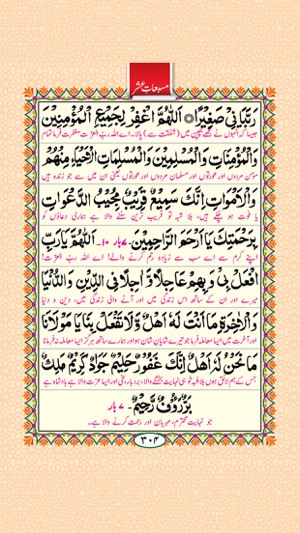 مسبعاتِ عشر
رَبَّيَانِيْ صَغِيْرًا ۞ اَللّٰهُمَّ اغْفِرْ لِجَمِيْعِ الْمُؤْمِنِيْنَ
جیسا کہ انہوں نے مجھے بچپن میں (شفقت سے) پالا۔ اے اللہ ربّ العزت مغفرت فرما تمام
وَالْمُؤْمِنَاتِ وَالْمُسْلِمِيْنَ وَالْمُسْلِمَاتِ الْاَحْيَاءِ مِنْهُمْ
مؤمن مردوں اور عورتوں اور مسلمان مردوں اور عورتوں یعنی ان میں سے جو زندہ ہیں
وَالْاَمْوَاتِ اِنَّكَ سَمِيْعٌ قَرِيْبٌ مُّجِيْبُ الدَّعْوَاتِ
یا فوت ہو چکے ہیں، بلا شبہ تو قریب ترین سننے والا ہے ہماری دعاؤں کو
بِرَحْمَتِكَ يَا اَرْحَمَ الرَّاحِمِيْنَ۔ ۷ بار ۱۰۔ اَللّٰهُمَّ يَا رَبِّ
اپنے کرم سے اے سب سے زیادہ رحم کرنے والے! اے اللہ رب العزت!
افْعَلْ بِيْ وَبِهِمْ عَاجِلًا وَّاٰجِلًا فِي الدِّيْنِ وَالدُّنْيَا
میرے اور ان کے ساتھ اس زندگی میں اور آنے والی زندگی میں، دین و دنیا
وَالْاٰخِرَةِ مَا اَنْتَ لَهٗ اَهْلٌ وَّلَا تَفْعَلْ بِنَا يَا مَوْلَانَا
اور آخرت میں ایسا معاملہ فرما جو تیرے شایانِ شان ہو اور ہمارے ساتھ ہرگز ایسا معاملہ نہ فرمانا
مَا نَحْنُ لَهٗ اَهْلٌ اِنَّكَ غَفُوْرٌ حَلِيْمٌ جَوَادٌ كَرِيْمٌ مَّلِكٌ
جس کے ہم لائق ہوں بلاشبہ تو ہی نہایت بخشنے والا، بردبار، سخی اور ایسا عزت والا ہے بادشاہ ہے
بَرٌّ رَّؤُوْفٌ رَّحِيْمٌ۔ ۷ بار
جو نہایت محترم، مہربان اور رحمت کرنے والا ہے۔
۳۰۴